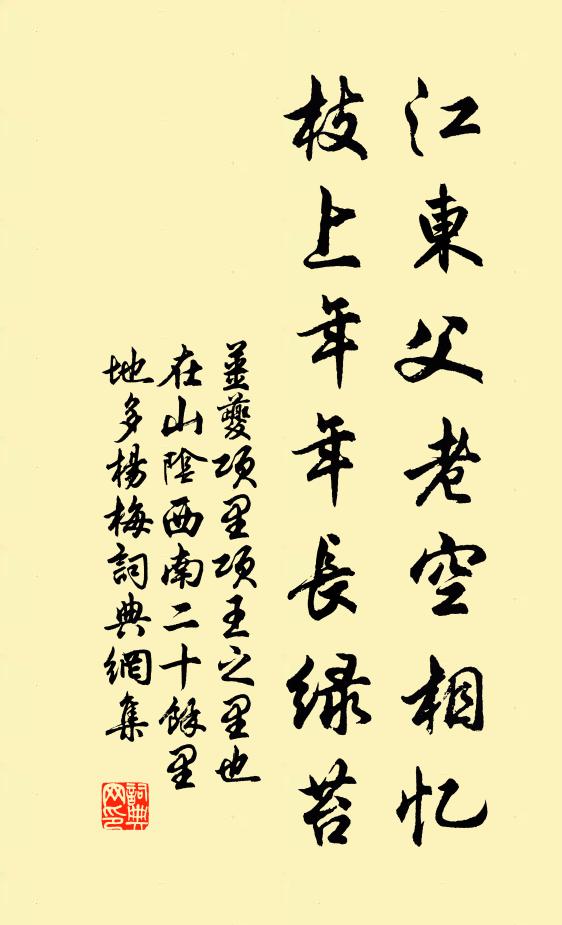 江東父老空相忆
枝上年年長緑苔
姜夔項里項王之里也
在山陰西南二十餘里
地多楊梅詞典網集
詞典
网印